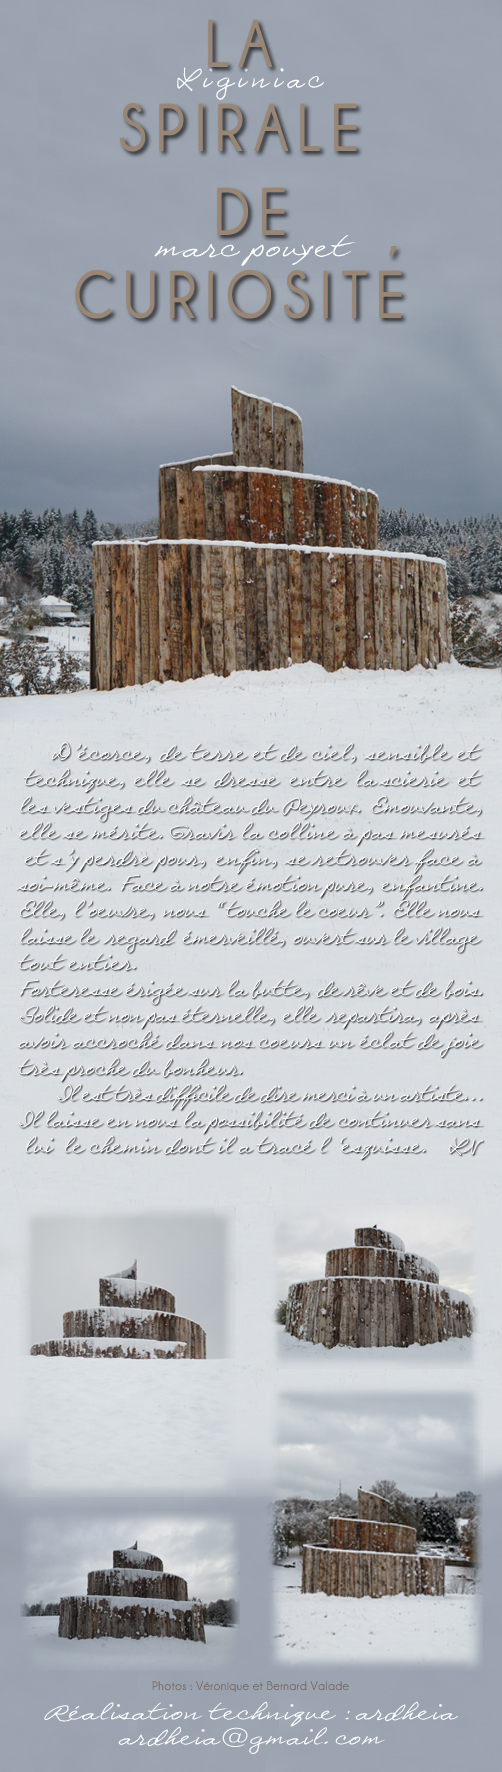 LA
Liginiac
SPIRALE
DE
marc pouyet
CURIOSITÉ
D'écorce, de terre et de ciel, sensible et
technique, elle se dresse entre la scierie et
les vestiges du château du Peyroux. Emouvante,
elle se mérite. Gravir la colline à pas mesurés
et s'y perdre pour, enfin, se retrouver face à
soi-même. Face à notre émotion pure, enfantine.
Elle, l'oeuvre, nous "touche le coeur". Elle nous
laisse le regard émerveillé, ouvert sur le village
tout entier.
Forteresse érigée sur la butte, de rêve et de bois.
Solide et non pas éternelle, elle repartira, après
avoir accroché dans nos coeurs un éclat de joie
très proche du bonheur.
Il est très difficile de dire merci à un artiste...
Il laisse en nous la possibilité de continuer sans
lui le chemin dont il a tracé l 'esquisse. LN
Photos : Véronique et Bernard Valade
Réalisation technique : ardheia
ardheia@gmail.com